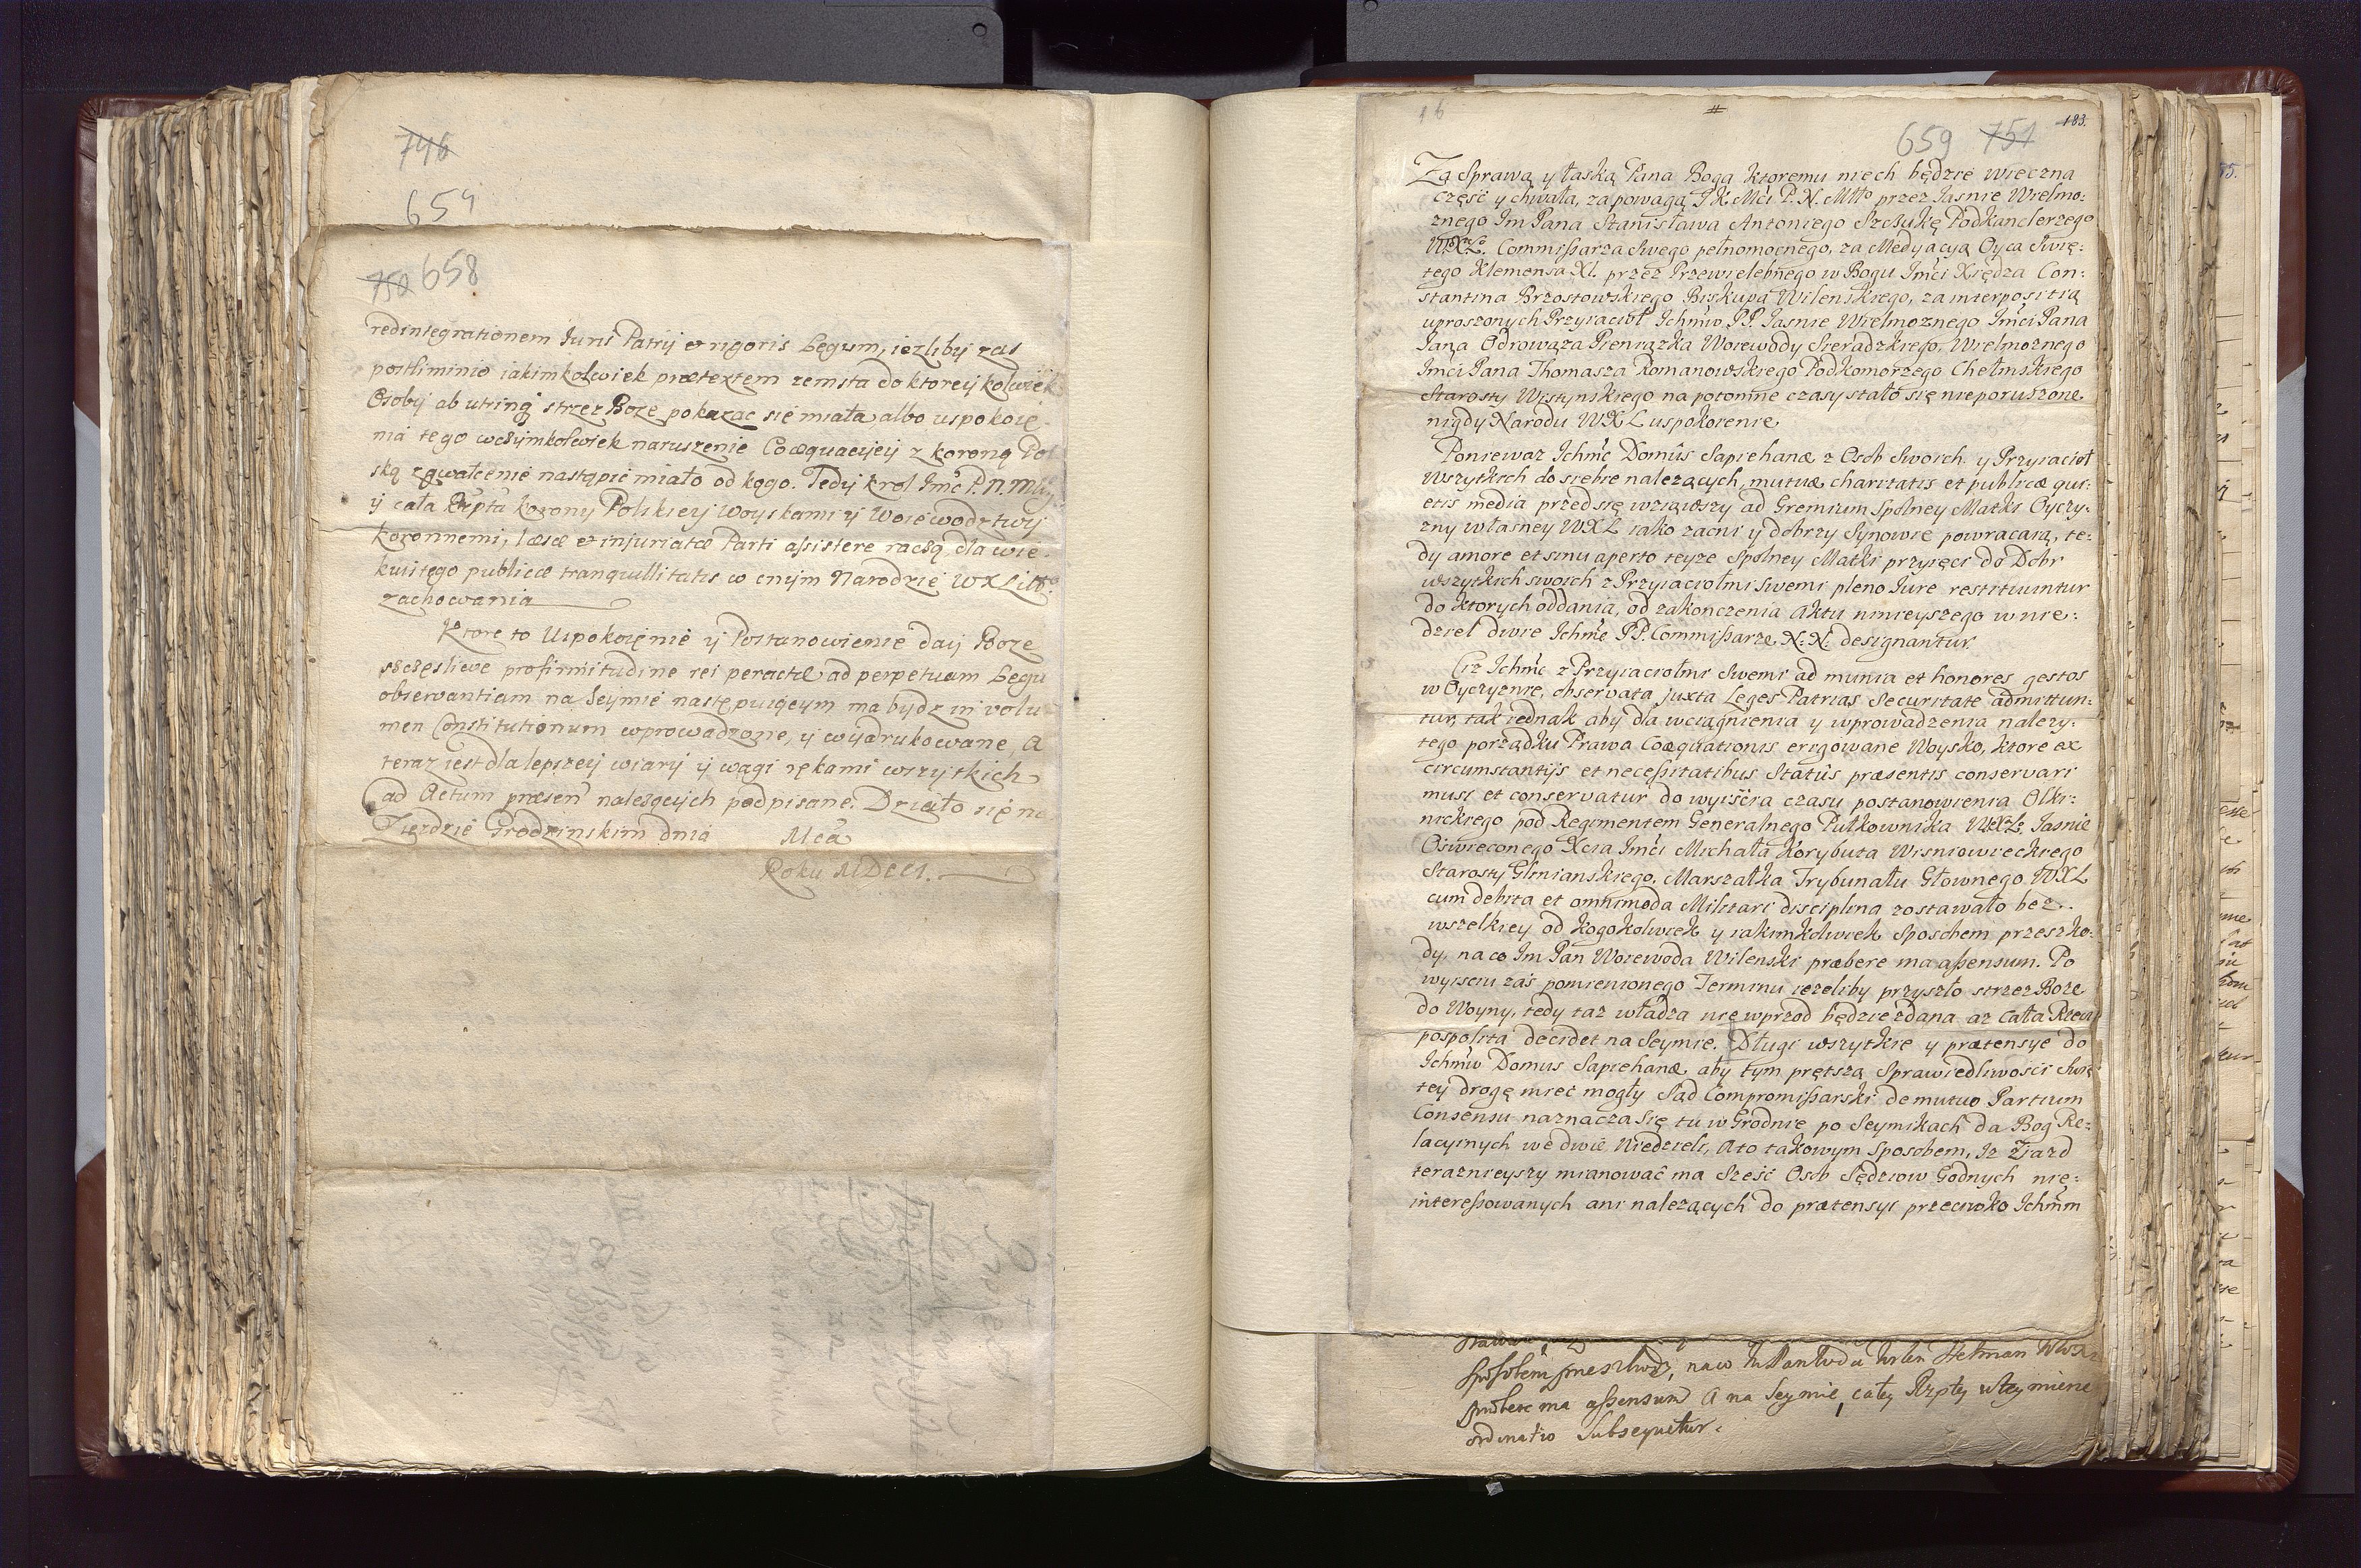 746
654
750 658
redintegrationem Juris Patrij et rigoris Legum, iezliby zas
postliminio iakimkolwiek prætextem zemsta do ktoreykolwiek
Osoby ab utrinq strzez Boze pokazac się miała albo uspokoię
nia tego wczymkolwiek naruszenie Coæquacyey z koroną Pol
ską zgwałcenie nastąpić miało od kogo. Tedy krol Jmć P. N. Mły
y cała Rzpta korony Polskiey Woyskami y Woiewodztwy
koronnemi, læsæ et injuriatæ Parti assistere raczą, dla wie
kuistego publicæ tranquillitatis w cnym Narodzie WXLitto
zachowania
Ktore to Uspokoięnie y Postanowienie day Boze
szczęsliwe pro firmitudine rei peractæ ad perpetuam Legu
observantiam na Seymie następuiącym ma bydz in volu
men Constitutionum wprowadzone, y wydrukowane, A
teraz iest dla lepszey wiary y wagi rękami wszytkich
ad Actum præsen nalezących podpisane. Działo się na
Zięzdzie Grodzinskim dnia Mca
Roku MDCCI.
16 #
659 751 183.
Za Sprawą y łaską Pana Boga ktoremu niech będzie wieczna
część y chwała, za powagą J K Mći P. N. Młto przez Jasnie Wielmo:
znego Jm Pana Stanisława Antoniego Szczukę Podkanclerzego
WXL. Commissarza Swego pełnomocnego, za Medyacyą Oyca Swię:
tego Klemensa XI. przez Przewielebnego w Bogu Jmći Xiędza Con:
stantina Brzostowskiego Biskupa Wilenskiego, za interpositią
uproszonych Przyiacioł Jchmw PP. Jasnie Wielmoznego Jmći Pana
Jana Odrowąza Pieniązka Woiewody Sieradzkiego, Wielmoznego
Jmći Pana Thomasza Romanowskiego Podkomorzego Chełmskiego
Starosty Wistynskiego na potomne czasy stało się nieporuszone
nigdy Narodu WXL uspokoienie
Poniewaz Jchmć Domûs Sapiehanæ z Osob Swoich y Przyiacioł
Wszytkich do siebie nalezących, mutuæ charitatis et publicæ qui:
etis media przed się wziąwszy ad Gremium Spolney Matki Oyczy:
zny własney WXL iako zacni y dobrzy Synowie powracaią, te:
dy amore et sinu aperto teyze Spolney Matki przyięci do Dobr
wszytkich swoich z Przyiaciołmi Swemi pleno Jure restituuntur
do ktorych oddania, od zakonczenia Aktu ninieyszego w nie:
dziel dwie Jchmć PP. Commissarze N: N: designantur.
Ciz Jchmć z Przyiaciołmi Swemi ad munia et honores gestos
w Oyczyznie, observata juxta Leges Patrias Securitate admittun:
tur, tak iednak aby dla wciągnienia y wprowadzenia nalezy:
tego porządku Prawa Coæquationis erigowane Woysko, ktore ex
circumstantijs et necessitatibus Statûs præsentis conservari
musi et conservatur do wyiścia czasu postanowienia Olki:
nickiego pod Regimentem Generalnego Pułkownika WXL. Jasnie
Oswieconego Xcia Jmći Michała Korybuta Wisniowieckiego
Starosty Glinianskiego, Marszałka Trybunału Głownego WXL
cum debita et omnimoda Militari disciplina zostawało bez..
wszelkiey od kogokolwiek y iakimkolwiek Sposobem przeszko:
dy, na co Jm Pan Woiewoda Wilenski præbere ma assensum. Po
wyisciu zaś pomienionego Terminu iezeliby przyszło strzez Boze
do Woyny, tedy taz władza nie wprzod będzie zdana az cała Rzecz
pospolita decidet na Seymie. Długi wszytkie y prætensye do
Jchmw Domus Sapiehanæ aby tym prętszą Sprawiedliwosci Swię
tey drogę miec mogły Sąd Compromissarski de mutuo Partium
Consensu naznacza Się tu w Grodnie po Seymikach da Bog Re:
lacyinych we dwie Niedzieli, A to takowym Sposobem, Iz Ziazd
teraznieyszy mianować ma Sześć Osob Sędziow Godnych nie:
interessowanych ani nalezących do prætensyi przeciwko Jchmm
sposobem przeszkody, na co Hetman
præbere ma assensum A na Seymie całey Rzptey
ordinatio Subsequetur.